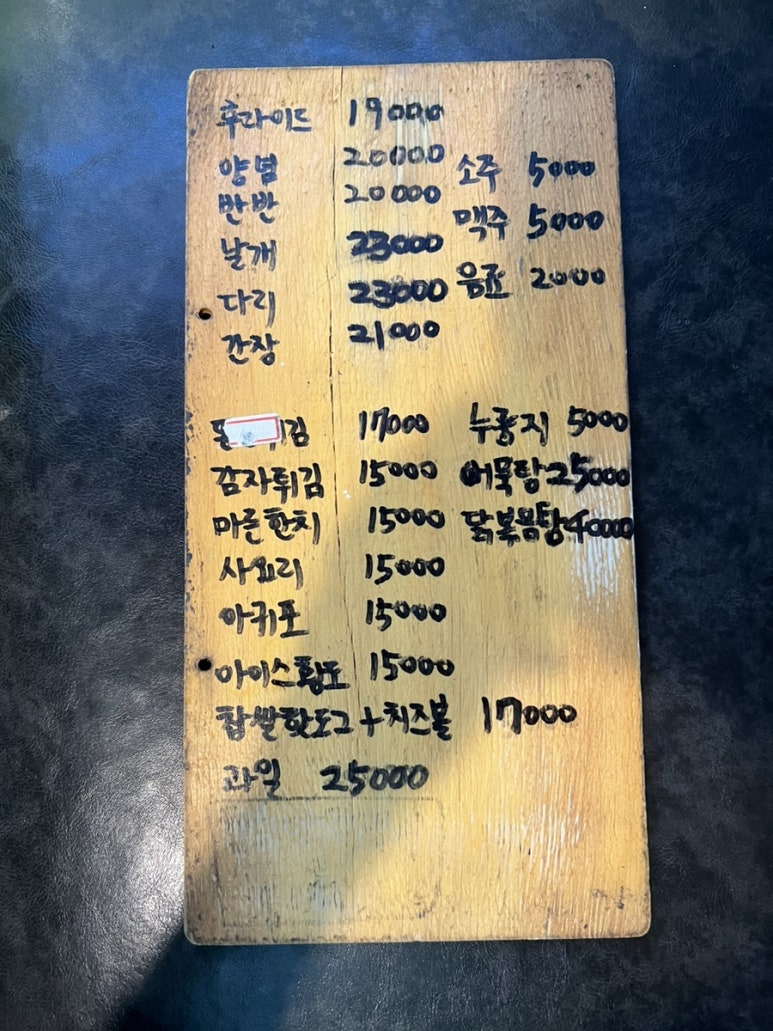 후라이드 19000
양념 20000
반반 20000
날개 23000
다리 23000
간장 21000
소주 5000
맥주 5000
음료 2000
튀김 17000
감자튀김 15000
마른한치 15000
사요리 15000
아귀포 15000
아이스황도 15000
찹쌀핫도그+치즈볼 17000
과일 25000
누룽지 5000
어묵탕 25000
닭볶음탕 40000